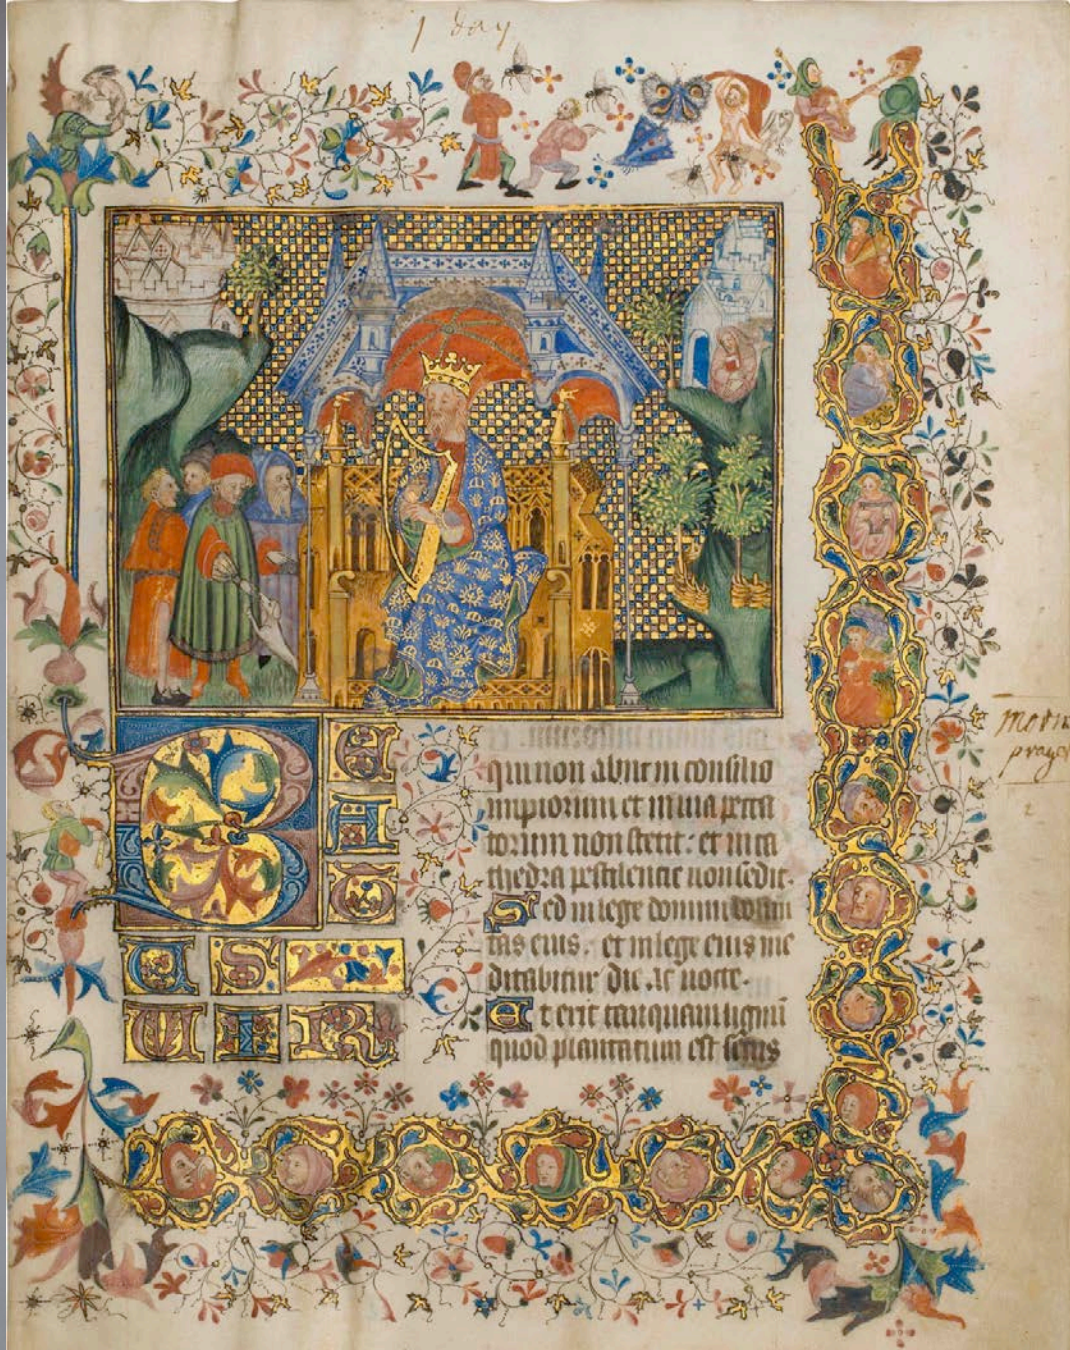 1 day
BEATUS VIR
qui non abiit in consilio
impiorum et in uia pecca
torum non stetit: et in ca
thedra pestilentie non sedit.
Sed in lege domini volun
tas eius: et in lege eius me
ditabitur die ac nocte.
Et erit tanquam lignū
quod plantatum est secus
prayer